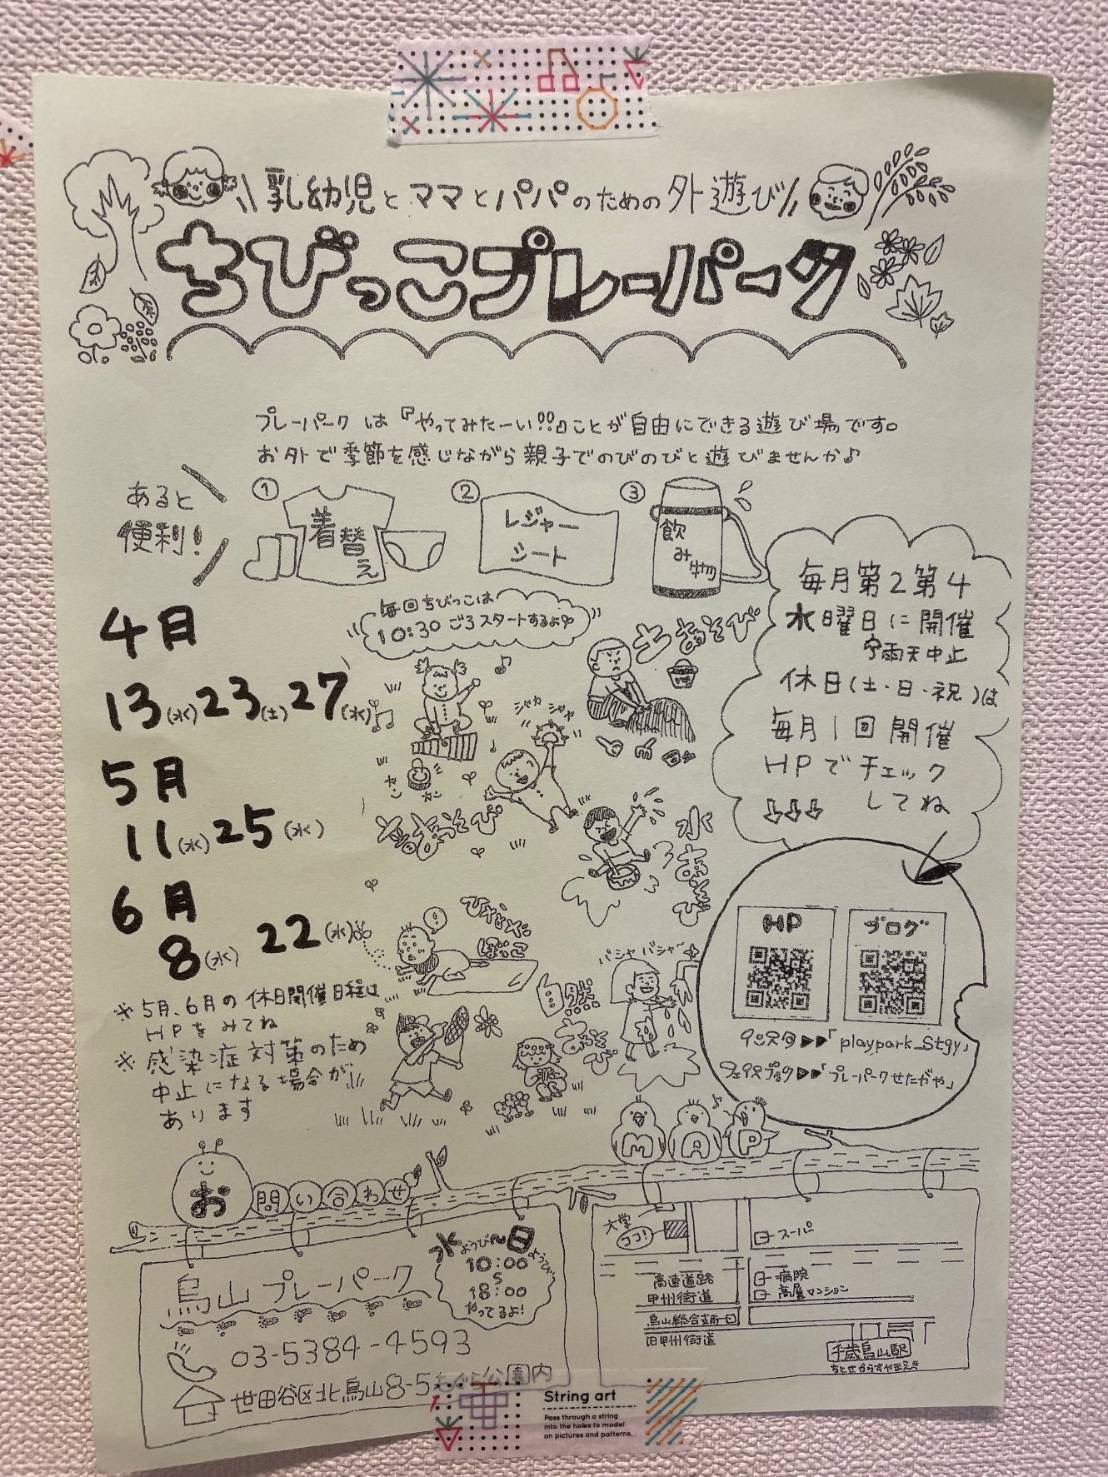 乳幼児とママとパパのための外遊び
ちびっこプレーパーク
プレーパークは『やってみたーい!!』ことが自由にできる遊び場です。
お外で季節を感じながら親子でのびのびと遊びませんか♪
あると
便利!
① 着替え
② レジャーシート
③ 飲み物
毎回ちびっこは
10:30ごろスタートするよ
4月
13(水)23(土)27(水)
5月
11(水)25(水)
6月
8(水) 22(水)
※5月、6月の休日開催日程は
HPをみてね
※感染症対策のため
中止になる場合が
あります
毎月第2第4
水曜日に開催
雨天中止
休日(土・日・祝)は
毎月1回開催
HPでチェック
してね
土あそび
シャカシャカ
カンカン
音あそび
水あそび
ひなたぼっこ
バシャバシャ
自然あそび
HP
ブログ
インスタ▶▶「playpark_stgy」
フェイスブック▶▶「プレーパークせたがや」
お問い合わせ
烏山プレーパーク
水ようび〜日ようび
10:00
18:00
やってるよ!
03-5384-4593
世田谷区北烏山8-5
公園内
MAP
大学
ココ!
スーパー
高速道路
甲州街道
病院
高層マンション
烏山総合支所
旧甲州街道
千歳烏山駅
ちとせからすやまえき
String art
Pass through a string
into the holes to model
on pictures and patterns.